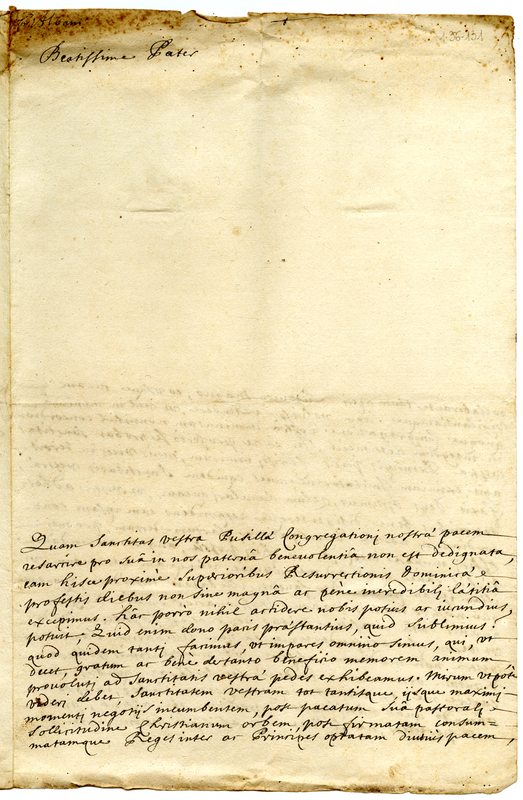 Beatissime Pater
1-26-131
Quam Sanctitas vestra Pusillæ Congregationi nostrâ pacem
resarcire pro suâ in nos paternâ benevolentiâ non est dedignata,
eam hisce proximè Superioribus Resurrectionis Dominicæ
profestis diebus non sine magnâ ac pène incredibilj lætitiâ
excepimus. hâc porro nihil accidere nobis potuit ac iucundius,
potuit. Quid enim dono pacis præstantius, quid sublimius?
quod quidem tanti facimus, vt impares omnino simus, qui, vt
decet, gratum ac bene de tanto beneficio memorem animum
provolutj ad Sanctitatis vestræ pedes exhibeamus. Mirum vt pote
viderj debet, Sanctitatem vestram tot tantisque, ijsque maximj
momentj negotijs incumbentem, post pacatum suâ pastoralj
Solicitudine Christianum orbem, post firmatam consum=
matamque Reges inter ac Principes optatam diutiùs pacem,